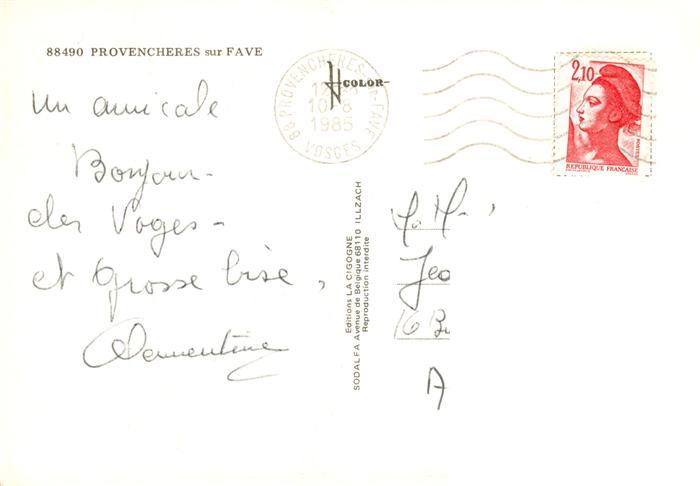 88490 PROVENCHERES sur FAVE
un amicale
Bonjour
des Voges -
et Grosse bise,
Clementine
88 PROVENCHERES-S-FAVE
10-8
1985
VOSGES
COLOR-
2,10
POSTES
REPUBLIQUE FRANÇAISE
Editions LA CIGOGNE
SODALFA Avenue de Belgique 68110 ILLZACH
Reproduction interdite
Jeo
16 B
A